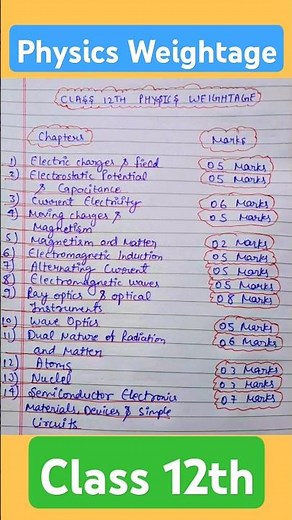 Physics Weightage
CLASS 12TH PHYSICS WEIGHTAGE
Chapters Marks
1) Electric charges & field 05 Marks
2) Electrostatic Potential 05 Marks
& Capacitance
3) Current Electricity 06 Marks
4) Moving charges & 05 Marks
Magnetism
5) Magnetism and Matter 02 Marks
6) Electromagnetic Induction 05 Marks
7) Alternating Current 05 Marks
8) Electromagnetic waves 05 Marks
9) Ray optics & optical 08 Marks
Instruments
10) Wave Optics 05 Marks
11) Dual Nature of Radiation 06 Marks
and Matter
12) Atoms 03 Marks
13) Nuclei 03 Marks
14) Semiconductor Electronics 07 Marks
Materials, Devices & Simple
Circuits
Class 12th